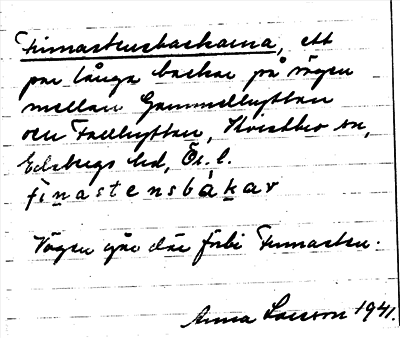 Finnastensbackarna, ett
par långa backar på vägen
mellan Gammelhyttan
och Fallhyttan, Kvistbro sn,
Edsbergs hd, Ör. l.
finastensbákar
Vägen går där förbi Finnasten.
Anna Larsson 1941.